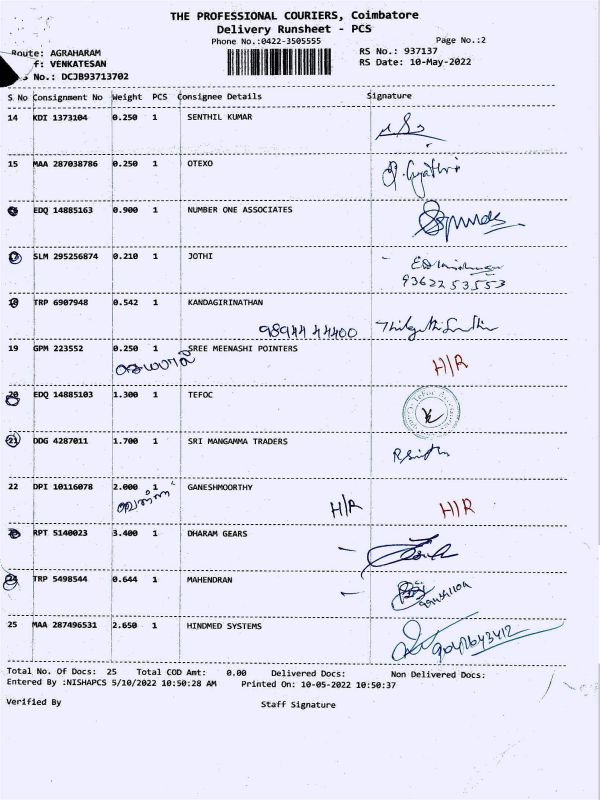 THE PROFESSIONAL COURIERS, Coimbatore
Delivery Runsheet - PCS
Phone No.:0422-3505555
Page No.:2
Route: AGRAHARAM
RS No.: 937137
f: VENKATESAN
RS Date: 10-May-2022
No.: DCJB93713702
S No Consignment No Weight PCS Consignee Details Signature
14 KDI 1373104 0.250 1 SENTHIL KUMAR
15 MAA 287038786 0.250 1 OTEXO
EDQ 14885163 0.900 1 NUMBER ONE ASSOCIATES
17 SLM 295256874 0.210 1 JOTHI
9362253553
18 TRP 6907948 0.542 1 KANDAGIRINATHAN
98944 44400
19 GPM 223552 0.250 1 SREE MEENASHI POINTERS
H/R
20 EDQ 14885103 1.300 1 TEFOC
21 DDG 4287011 1.700 1 SRI MANGAMMA TRADERS
22 DPI 10116078 2.000 1 GANESHMOORTHY
H/R H/R
RPT 5140023 3.400 1 DHARAM GEARS
24 TRP 5498544 0.644 1 MAHENDRAN
25 MAA 287496531 2.650 1 HINDMED SYSTEMS
Total No. Of Docs: 25 Total COD Amt: 0.00 Delivered Docs: Non Delivered Docs:
Entered By :NISHAPCS 5/10/2022 10:50:28 AM Printed On: 10-05-2022 10:50:37
Verified By Staff Signature